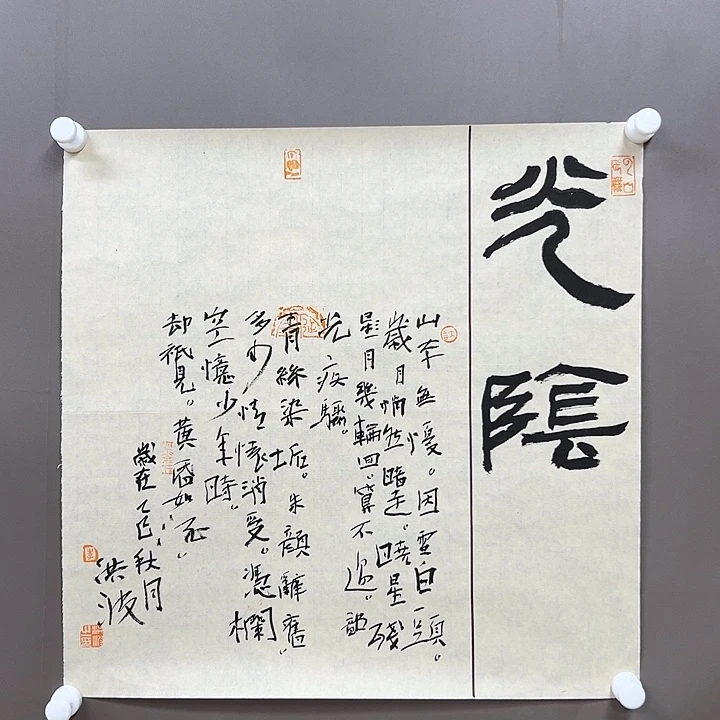 光陰
山本無憂。因雪白頭。
歲月悄然暗走。曉星殘
影月幾輪回。實不過。韶
光疾驟。
青絲染垢。朱顏辭舊。
多少情懷消受。憑欄
空憶少年時。
却祇見。黄昏如
歲在乙巳秋月
洪波